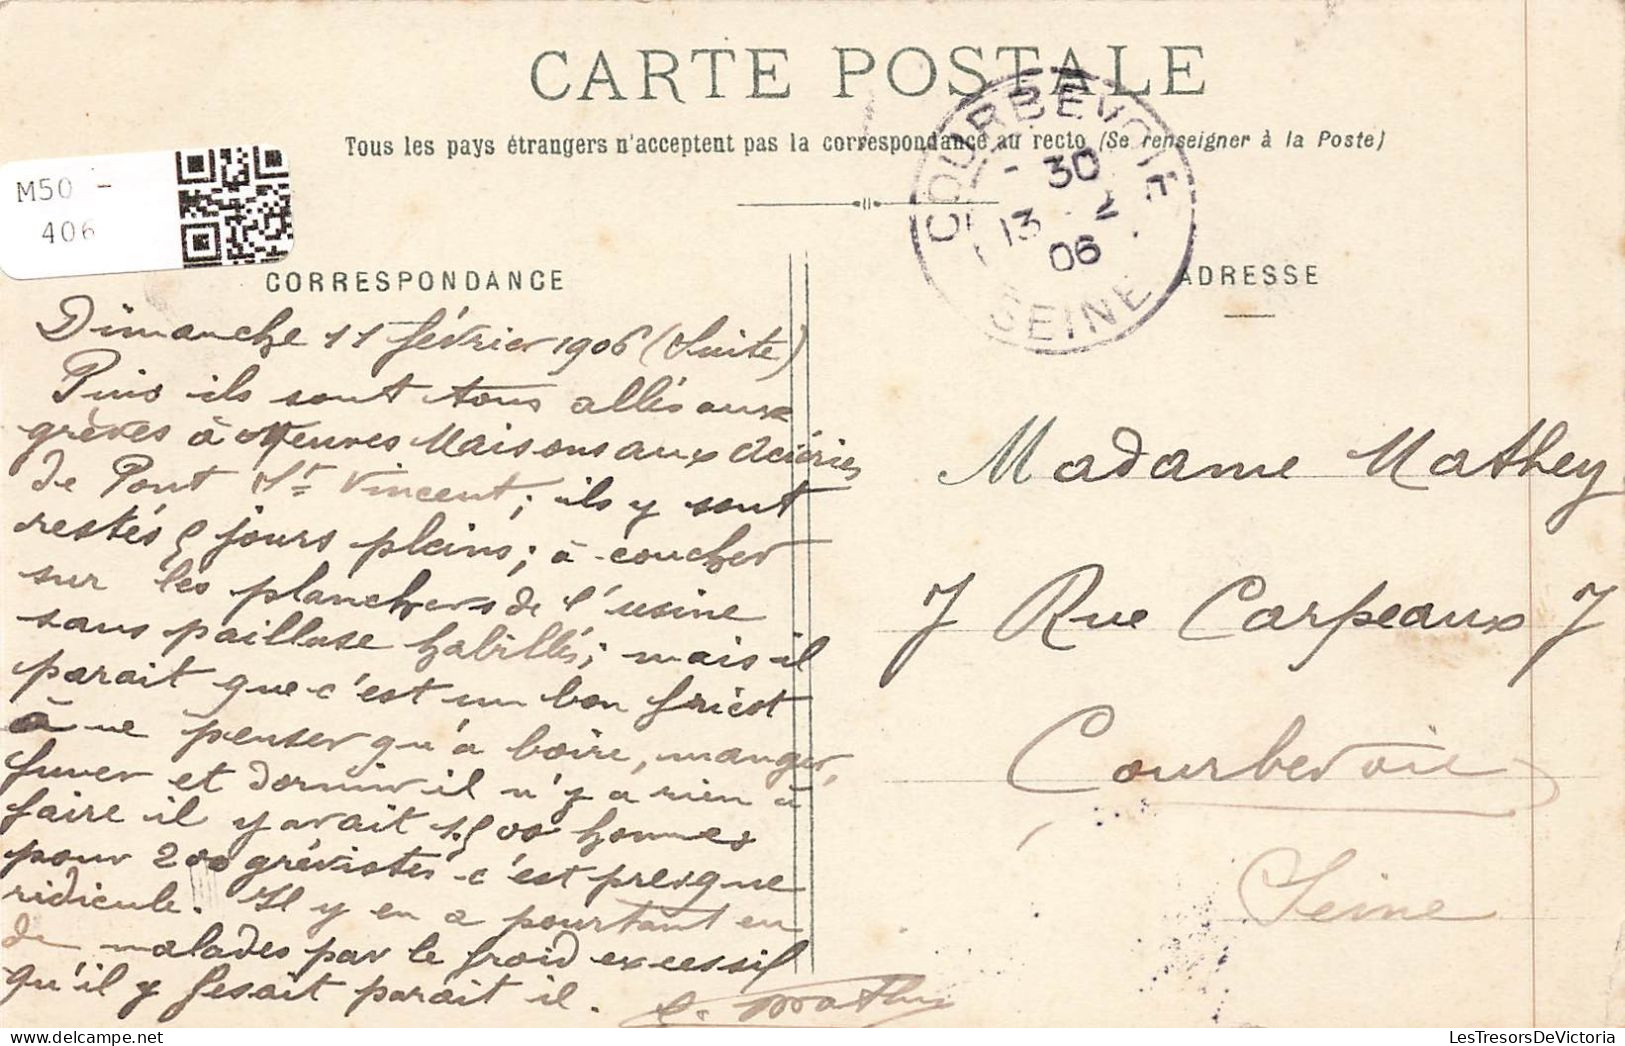 CARTE POSTALE
Tous les pays étrangers n'acceptent pas la correspondance au recto (Se renseigner à la Poste)
M50 -
406
COURBEVOIE
- 30
13 - 2
06
SEINE
CORRESPONDANCE
Dimanche 11 février 1906 (Suite)
Puis ils sont tous allés aux
grèves à Neuves Maisons aux Aciéries
de Pont St Vincent; ils y sont
restés 5 jours pleins; à coucher
sur les planchers de l'usine
sans paillasse habillés; mais il
parait que c'est un bon fricot
à ne penser qu'à boire, manger,
fumer et dormir il n'y a rien à
faire il y avait 1500 hommes
pour 200 grévistes c'est presque
ridicule. Il y en a pourtant eu
de malades par le froid excessif
qu'il y fesait parait il.
ADRESSE
Madame Mathey
7 Rue Carpeaux 7
Courbevoie
Seine
LesTresorsDeVictoria